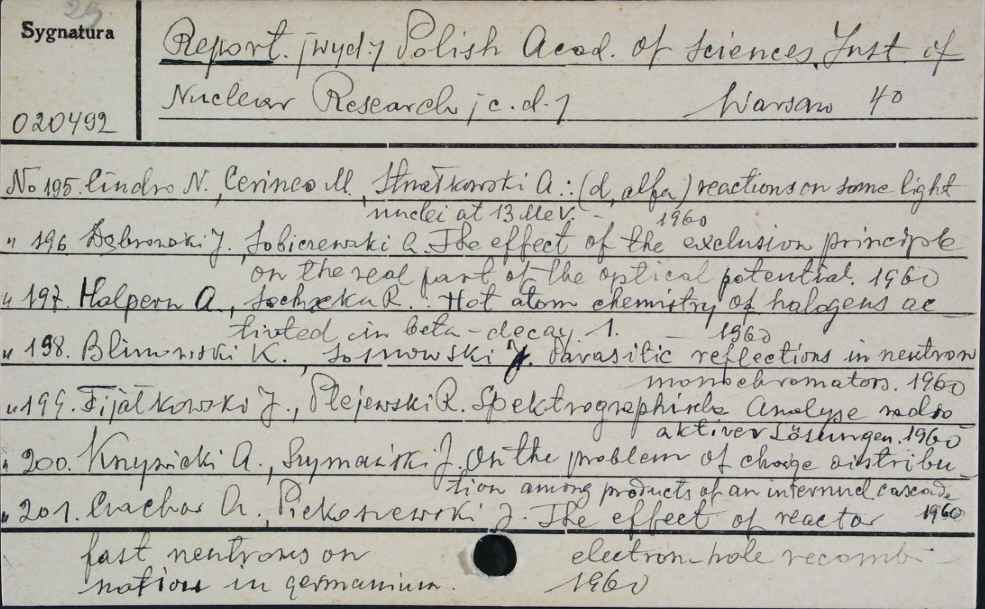 25
Sygnatura
Report. [wyd:] Polish Acad. of Sciences. Inst. of
Nuclear Research [c.d.] Warsaw 40
020492
No 195. Cindro N., Cerineo M., Strzałkowski A.: (d, alfa) reactions on some light
nuclei at 13 MeV. - 1960
" 196. Dąbrowski J., Sobiczewski A. The effect of the exclusion principle
on the real part of the optical potential. 1960
" 197. Halpern A., Sochacka R. Hot atom chemistry of halogens ac-
tivted in beta-decay. 1. - 1960
" 198. Blinowski K., Sosnowski J. Parasitic reflections in neutron
monochromators. 1960
" 199. Fijałkowski J., Plejewski R. Spektrographische Analyse radio
aktiver Lösungen. 1960
" 200. A., Szymański J. On the problem of charge distribu-
tion among products of an internucl. cascade
" 201. A., Piekoszewski J. The effect of reactor 1960
fast neutrons on electron-hole recombi-
nation in germanium. 1960